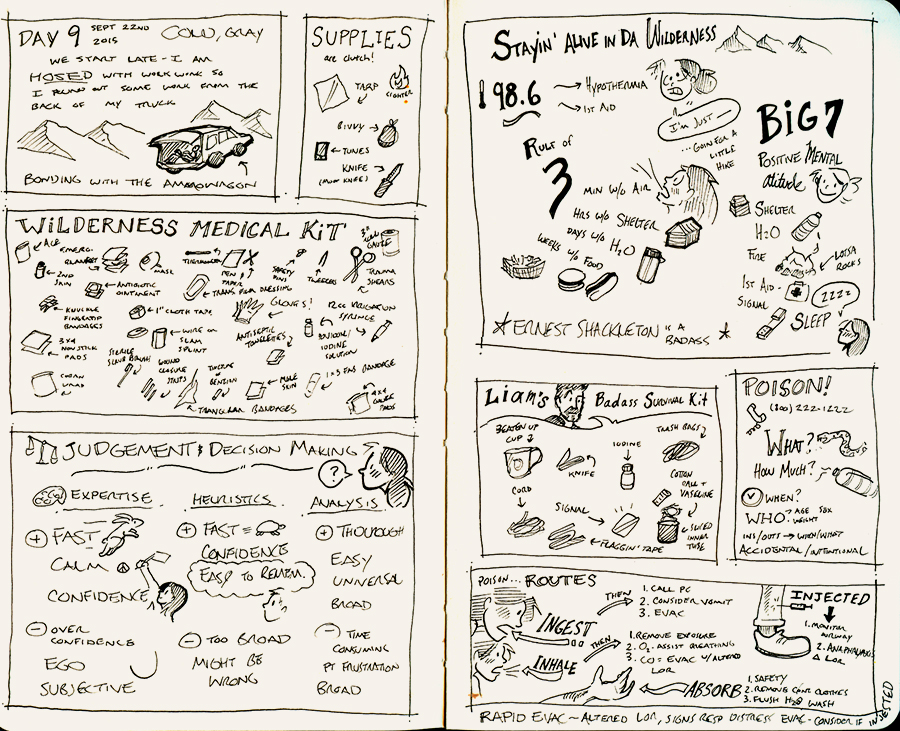 DAY 9 SEPT 22ND 2015 COLD, GRAY
WE START LATE - I AM
HOSED WITH WORK WORK SO
I POUND OUT SOME WORK FROM THE
BACK OF MY TRUCK
BONDING WITH THE AMMOWAGON
SUPPLIES
are clutch!
TARP
LIGHTER
BIVVY
TUNES
KNIFE
WILDERNESS MEDICAL KIT
ACE
EMERG. BLANKET
MASK
TOURNIQUET
PEN & PAPER
SAFETY PINS
TWEEZERS
3" GAUZE
TRAUMA SHEARS
2ND SKIN
ANTIBIOTIC OINTMENT
TRANSPARENT DRESSING
KNUCKLE FINGERTIP BANDAGES
1" CLOTH TAPE
GLOVES!
12CC IRRIGATION SYRINGE
3X4 NON STICK PADS
STERILE SCRUB BRUSH
WIRE OR SLAM SPLINT
ANTISEPTIC TOWELETTES
IODINE SOLUTION
COBAN WRAP
WOUND CLOSURE STRIPS
TINCTURE OF BENZOIN
MOLE SKIN
1X3 FAB BANDAGE
TRIANGULAR BANDAGES
4X4 GAUZE PADS
JUDGEMENT & DECISION MAKING
?
EXPERTISE
+ FAST
CALM
CONFIDENCE
- OVER CONFIDENCE
EGO
SUBJECTIVE
HEURISTICS
+ FAST =
CONFIDENCE
EASY TO REMEM.
- TOO BROAD
MIGHT BE
WRONG
ANALYSIS
+ THOUROUGH
EASY
UNIVERSAL
BROAD
- TIME
CONSUMING
PT FRUSTRATION
BROAD
STAYIN' ALIVE IN DA WILDERNESS
98.6
HYPOTHERMIA
1ST AID
I'M JUST —
...GOIN FOR A
LITTLE
HIKE
RULE OF
3
MIN W/O AIR
HRS W/O SHELTER
DAYS W/O H2O
WEEKS W/O FOOD
BIG 7
POSITIVE MENTAL
attitude
SHELTER
H2O
FIRE
LOTSA ROCKS
1ST AID
SIGNAL
ZZZZ
SLEEP
* ERNEST SHACKLETON IS A BADASS *
Liam's Badass Survival Kit
BEATEN UP CUP
KNIFE
IODINE
TRASH BAGS
CORD
SIGNAL
COTTON BALL + VASELINE
FLAGGIN' TAPE
SLICED INNER TUBE
POISON!
(800) 222-1222
WHAT?
HOW MUCH?
WHEN?
WHO - AGE SEX
WEIGHT
INS/OUTS → WHEN/WHAT
ACCIDENTAL / INTENTIONAL
POISON... ROUTES
INGEST
THEN
1. CALL PC
2. CONSIDER VOMIT
3. EVAC
INHALE
THEN
1. REMOVE EXPOSURE
2. O2 - ASSIST BREATHING
3. CO: EVAC W/ ALTERED
LOR
ABSORB
1. SAFETY
2. REMOVE CONT CLOTHES
3. FLUSH H2O WASH
INJECTED
1. MONITOR AIRWAY
2. ANAPHYLAXIS
Δ LOR
RAPID EVAC ~ ALTERED LOR, SIGNS RESP DISTRESS EVAC - CONSIDER IF INJESTED